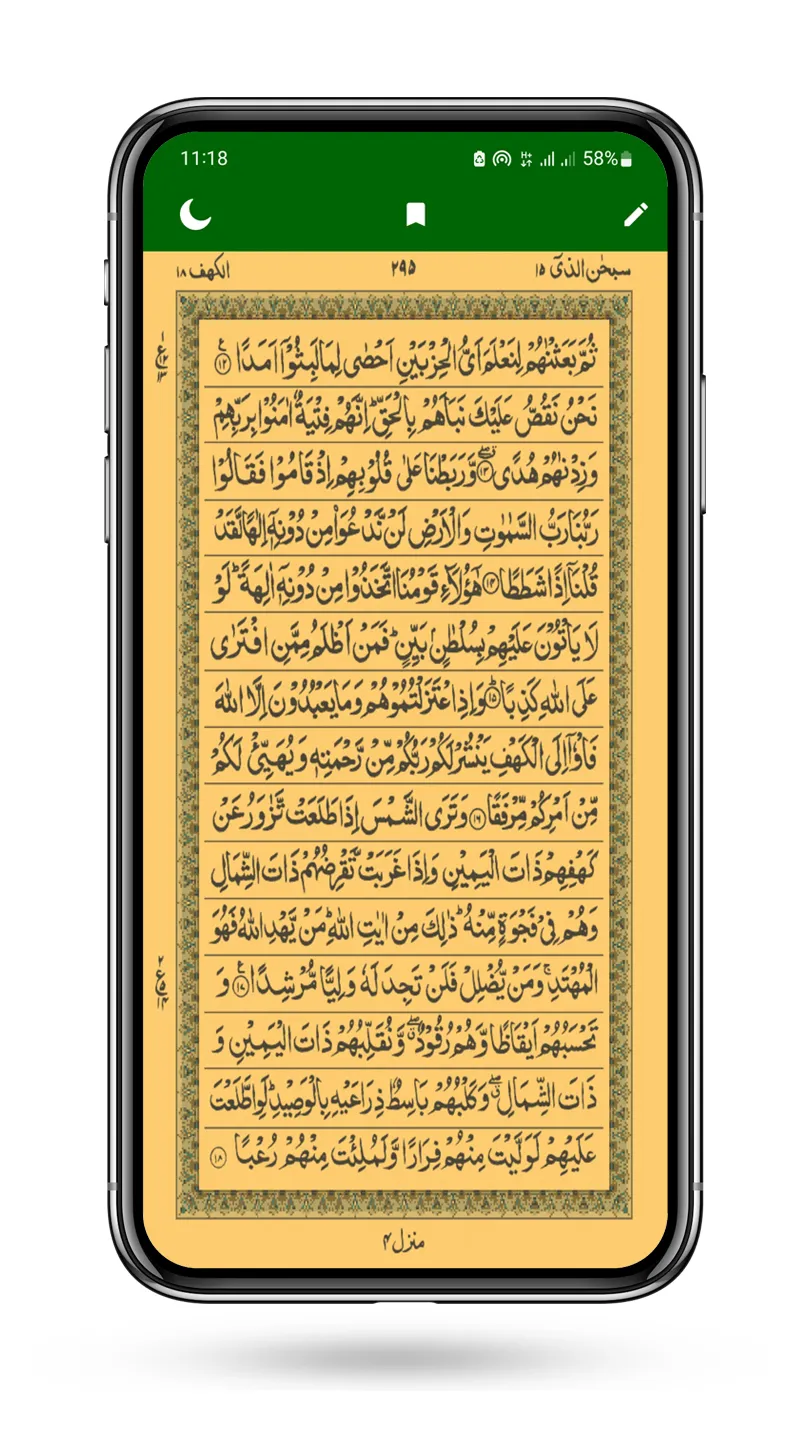 11:18 58%
سبحٰن الذیٓ ۱۵ ۲۹۵ الکھف ۱۸
ثُمَّ بَعَثْنٰهُمْ لِنَعْلَمَ اَیُّ الْحِزْبَیْنِ اَحْصٰی لِمَا لَبِثُوْۤا اَمَدًا ﴿۱۲﴾
نَحْنُ نَقُصُّ عَلَیْكَ نَبَاَهُمْ بِالْحَقِّ ؕ اِنَّهُمْ فِتْیَةٌ اٰمَنُوْا بِرَبِّهِمْ
وَزِدْنٰهُمْ هُدًی ﴿۱۳﴾ وَّرَبَطْنَا عَلٰی قُلُوْبِهِمْ اِذْ قَامُوْا فَقَالُوْا
رَبُّنَا رَبُّ السَّمٰوٰتِ وَالْاَرْضِ لَنْ نَّدْعُوَا۠ مِنْ دُوْنِهٖۤ اِلٰهًا لَّقَدْ
قُلْنَاۤ اِذًا شَطَطًا ﴿۱۴﴾ هٰۤؤُلَآءِ قَوْمُنَا اتَّخَذُوْا مِنْ دُوْنِهٖۤ اٰلِهَةً ؕ لَوْ
لَا یَاْتُوْنَ عَلَیْهِمْ بِسُلْطٰنٍۭ بَیِّنٍ ؕ فَمَنْ اَظْلَمُ مِمَّنِ افْتَرٰی
عَلَی اللّٰهِ كَذِبًا ﴿ؕ۱۵﴾ وَاِذِ اعْتَزَلْتُمُوْهُمْ وَمَا یَعْبُدُوْنَ اِلَّا اللّٰهَ
فَاْوٗۤا اِلَی الْكَهْفِ یَنْشُرْ لَكُمْ رَبُّكُمْ مِّنْ رَّحْمَتِهٖ وَیُهَیِّئْ لَكُمْ
مِّنْ اَمْرِكُمْ مِّرْفَقًا ﴿۱۶﴾ وَتَرَی الشَّمْسَ اِذَا طَلَعَتْ تَّزٰوَرُ عَنْ
كَهْفِهِمْ ذَاتَ الْیَمِیْنِ وَاِذَا غَرَبَتْ تَّقْرِضُهُمْ ذَاتَ الشِّمَالِ
وَهُمْ فِیْ فَجْوَةٍ مِّنْهُ ؕ ذٰلِكَ مِنْ اٰیٰتِ اللّٰهِ ؕ مَنْ یَّهْدِ اللّٰهُ فَهُوَ
الْمُهْتَدِ ۚ وَمَنْ یُّضْلِلْ فَلَنْ تَجِدَ لَهٗ وَلِیًّا مُّرْشِدًا ﴿۱۷﴾ وَ
تَحْسَبُهُمْ اَیْقَاظًا وَّهُمْ رُقُوْدٌ ۖ وَّنُقَلِّبُهُمْ ذَاتَ الْیَمِیْنِ وَ
ذَاتَ الشِّمَالِ ۖ وَكَلْبُهُمْ بَاسِطٌ ذِرَاعَیْهِ بِالْوَصِیْدِ ؕ لَوِ اطَّلَعْتَ
عَلَیْهِمْ لَوَلَّیْتَ مِنْهُمْ فِرَارًا وَّلَمُلِئْتَ مِنْهُمْ رُعْبًا ﴿۱۸﴾
منزل ۴